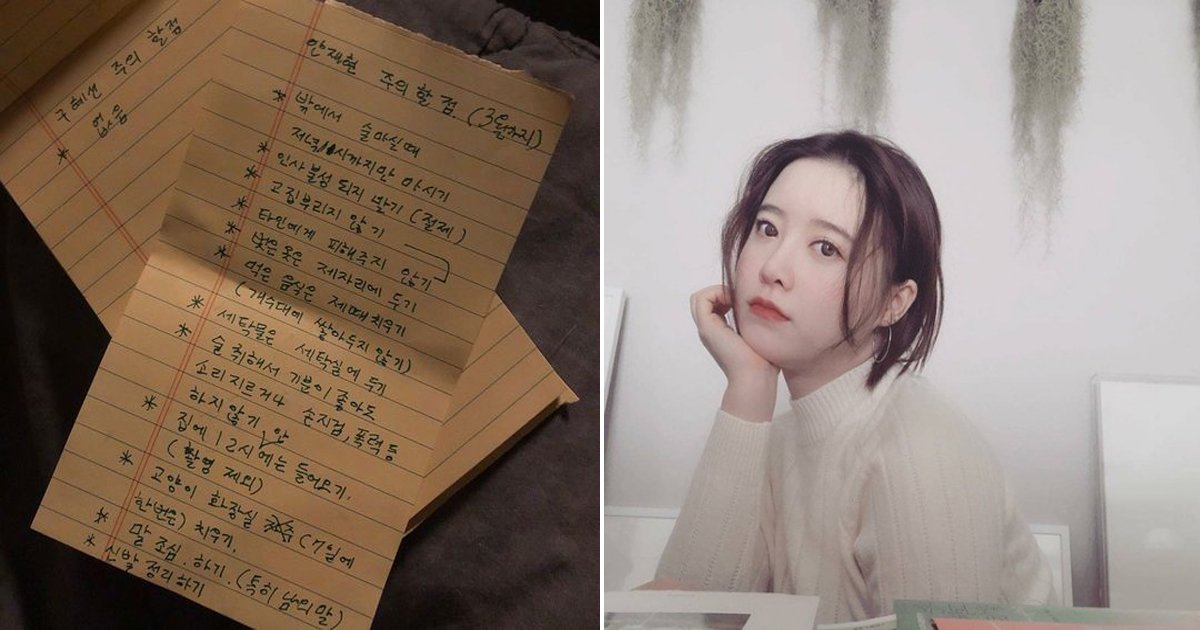 구혜선 주의 할점
없음
*
안재현 주의할 점. (3월까지)
* 밖에서 술마실때
저녁 시까지만 마시기
* 인사불성 되지 말기 (절제)
* 고집부리지 않기
* 타인에게 피해주지 않기
* 벗은옷은 제자리에 두기
* 먹은 음식은 제때 치우기
(개수대에 쌓아두지 않기)
* 세탁물은 세탁실에 두기
* 술 취해서 기분이 좋아도
소리지르거나 손지검, 폭력 등
하지않기
* 집에 12시 안에는 들어오기.
(촬영 제외)
* 고양이 화장실 (7일에
한번은) 치우기.
* 말 조심. 하기. (특히 남의 말)
* 신발 정리하기